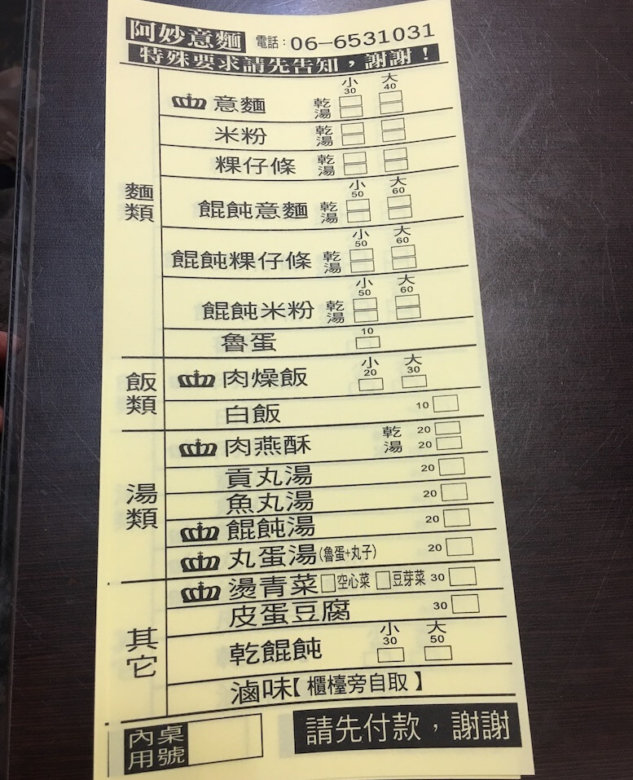 阿妙意麵 電話：06-6531031
特殊要求請先告知，謝謝！
麵類
小 大
30 40
意麵 乾 湯
米粉 乾 湯
粿仔條 乾 湯
小 大
50 60
餛飩意麵 乾 湯
小 大
50 60
餛飩粿仔條 乾 湯
小 大
50 60
餛飩米粉 乾 湯
魯蛋 10
飯類
小 大
肉燥飯 20 30
白飯 10
湯類
肉燕酥 乾 20 湯 20
貢丸湯 20
魚丸湯 20
餛飩湯 20
丸蛋湯(魯蛋+丸子) 20
其它
燙青菜 空心菜 豆芽菜 30
皮蛋豆腐 30
小 大
乾餛飩 30 50
滷味【櫃檯旁自取】
內用桌號
請先付款，謝謝